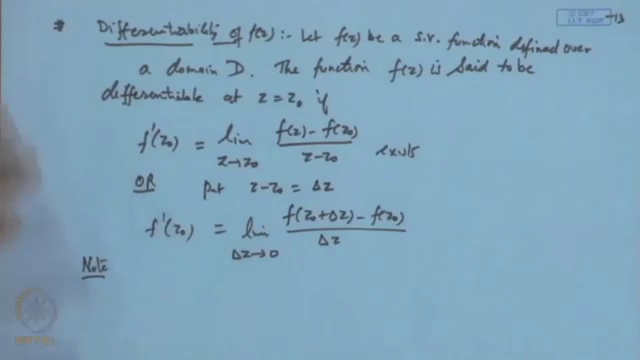 * Differentiability of f(z) :- Let f(z) be a s.v. function defined over
a domain D. The function f(z) is said to be
differentiable at z = z₀ if
f'(z₀) = lim_{z→z₀} (f(z) - f(z₀))/(z - z₀) exists
OR put z - z₀ = Δz
f'(z₀) = lim_{Δz→0} (f(z₀+Δz) - f(z₀))/Δz
Note
© CET
I.I.T. KGP
NPTEL